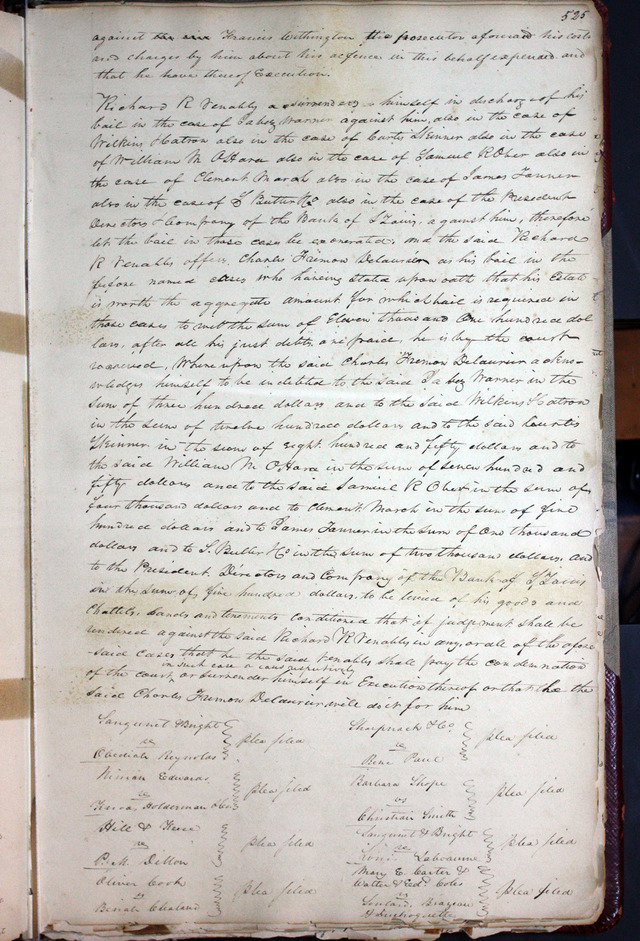 525
against Francis Withington the prosecutor aforesaid his costs
and charges by him about his defence in this behalf expended and
that he have thereof Execution.
Richard R Venables surrenders himself in discharge of his
bail in the case of Jabez Warner against him, also in the case of
Wilkins Hatron also in the case of Curtis Skinner also in the case
of William M. OHara also in the case of Samuel R Ober also in
the case of Clement March also in the case of James Tanner
also in the case of S Butler & Co also in the case of the President
Directors & Company of the Bank of St Louis, against him, therefore
let the bail in those cases be exonerated, and the said Richard
R Venables offers Charles Fremon Delaurier as his bail in the
before named cases who having stated upon oath that his Estate
is worth the aggregate amount for which bail is required in
those cases to wit the sum of Eleven thousand One hundred dol
lars, after all his just debts are paid, he is by the court
received, Whereupon the said Charles Fremon Delaurier ackno-
wledges himself to be indebted to the said Jabez Warner in the
sum of three hundred dollars and to the said Wilkins Hatron
in the sum of twelve hundred dollars and to the said Curtis
Skinner in the sum of eight hundred and fifty dollars and to
the said William M OHara in the sum of seven hundred and
fifty dollars and to the said Samuel R Ober in the sum of
four thousand dollars and to Clement March in the sum of five
hundred dollars and to James Tanner in the sum of One thousand
dollars and to S. Butler & Co in the sum of two thousand dollars, and
to the President, Directors and Company of the Bank of St Louis
in the sum of five hundred dollars, to be levied of his goods and
Chattels, Lands and tenements conditioned that if judgement shall be
rendered against the said Richard R Venables in any, or all of the afore
-said cases that he the said Venables shall pay the condemnation
in such case or cases respectively
of the court, or surrender himself in Execution thereof or that he the
said Charles Fremon Delaurier will do it for him
Sanguinet & Bright
vs plea filed
Obediah Reynolds
Ninian Edwards
vs plea filed
Holderman & Co
Hill & Keese
vs plea filed
P. M. Dillon
Oliver Cook
vs plea filed
Sharpnack & Co.
vs plea filed
Bene Paul
Barbara Shope
vs plea filed
Christian Smith
Sanguinet & Bright
vs plea filed
Louis Labeaume
Mary E. Carter &
Walter & Edd. Coles
vs plea filed
Soulard,